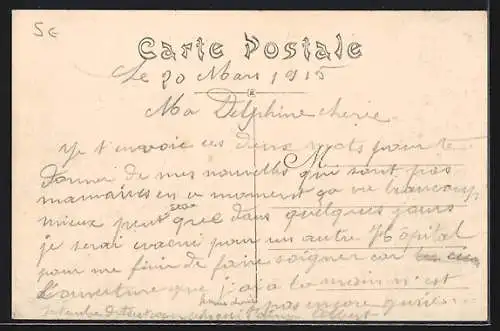 5€
Carte Postale
Le 20 Mars 1915
Ma Delphine cherie
Je t'envoie ces deux mots pour te
donner de mes nouvelles qui sont pas
mauvaises en ce moment ça va beaucoup
mieux peut etre que dans quelques jours
je serai evacué pour un autre Hôpital
pour me finir de faire soigner car
L'ouverture que j'ai à la main n'est
pas encore guerie